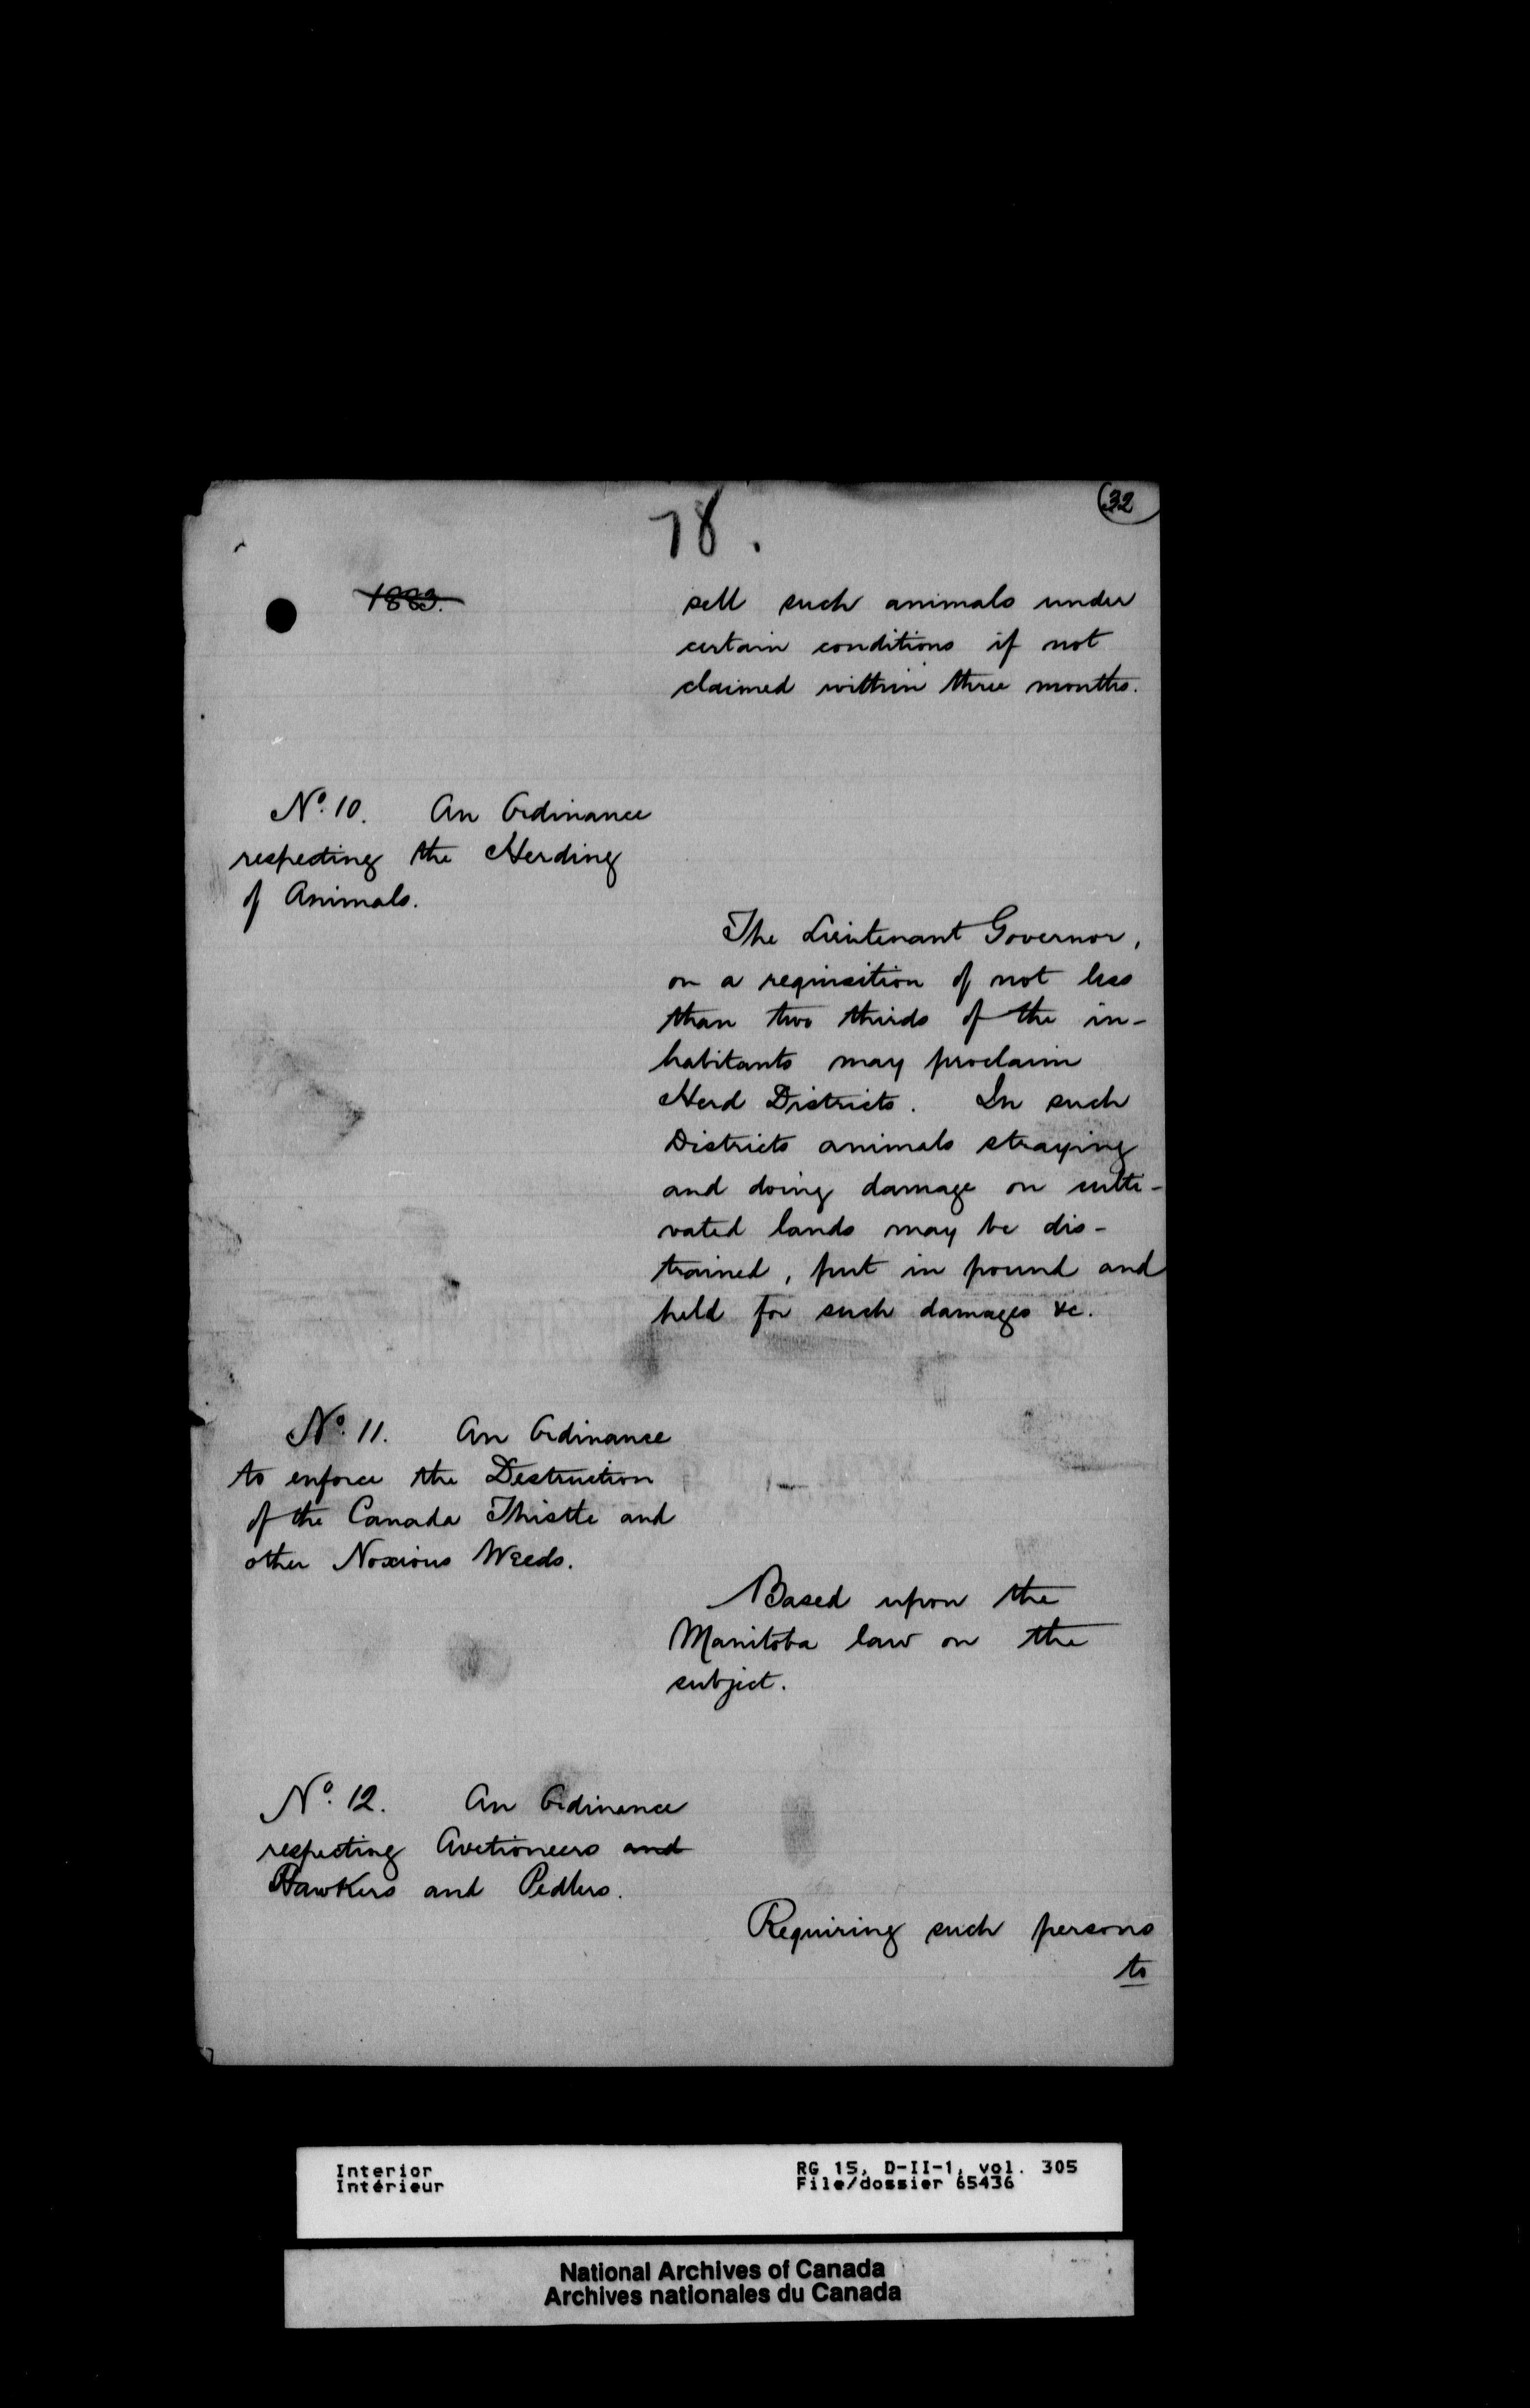 32
78.
1883.
sell such animals under
certain conditions if not
claimed within three months.
No. 10. An Ordinance
respecting the Herding
of Animals.
The Lieutenant Governor,
on a requisition of not less
than two thirds of the in-
habitants may proclaim
Herd Districts. In such
Districts animals straying
and doing damage on culti-
vated lands may be dis-
trained, put in pound and
held for such damages &c.
No. 11. An Ordinance
to enforce the Destruction
of the Canada Thistle and
other Noxious Weeds.
Based upon the
Manitoba law on the
subject.
No. 12. An Ordinance
respecting Auctioneers and
Hawkers and Pedlers.
Requiring such persons
to
Interior
Intérieur
RG 15, D-II-1, vol. 305
File/dossier 65436
National Archives of Canada
Archives nationales du Canada